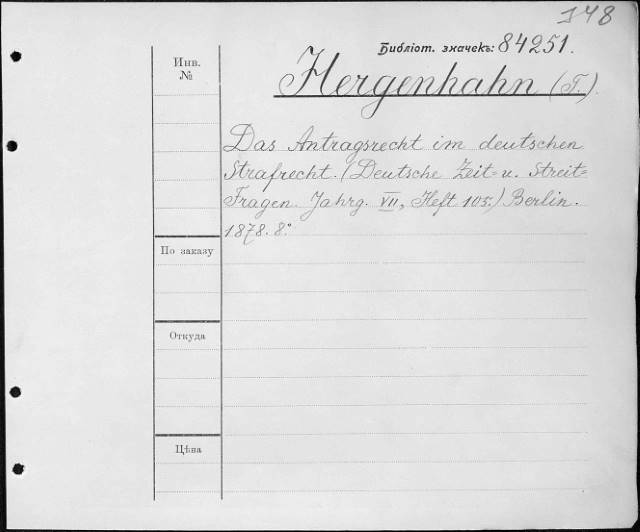 148
Библіот. значекъ: 84251.
Инв.
№
Hergenhahn (T.).
Das Antragsrecht im deutschen
Strafrecht. (Deutsche Zeit= u. Streit=
Fragen. Jahrg. VII, Heft 105.) Berlin.
1878. 8.°
По заказу
Откуда
Цѣна